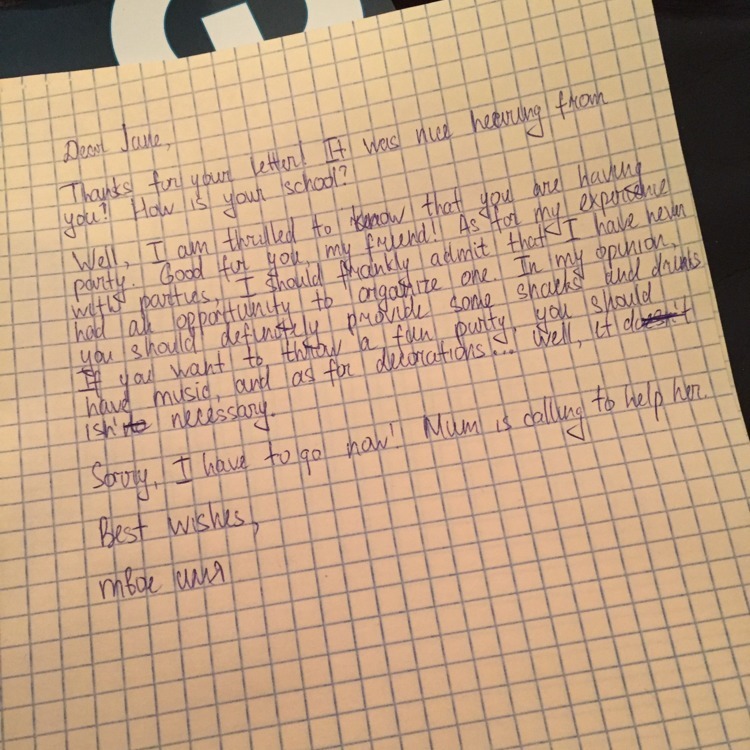 Dear Jane,
Thanks for your letter! It was nice hearing from
you! How is your school?
Well, I am thrilled to know that you are having
party. Good for you, my friend! As for my experience
with parties, I should frankly admit that I have never
had an opportunity to organize one. In my opinion,
you should definitely provide some snacks and drinks
If you want to throw a fun party, you should
have music, and as for decorations... Well, it
isn't necessary.
Sorry, I have to go now! Mum is calling to help her.
Best wishes,
твое имя